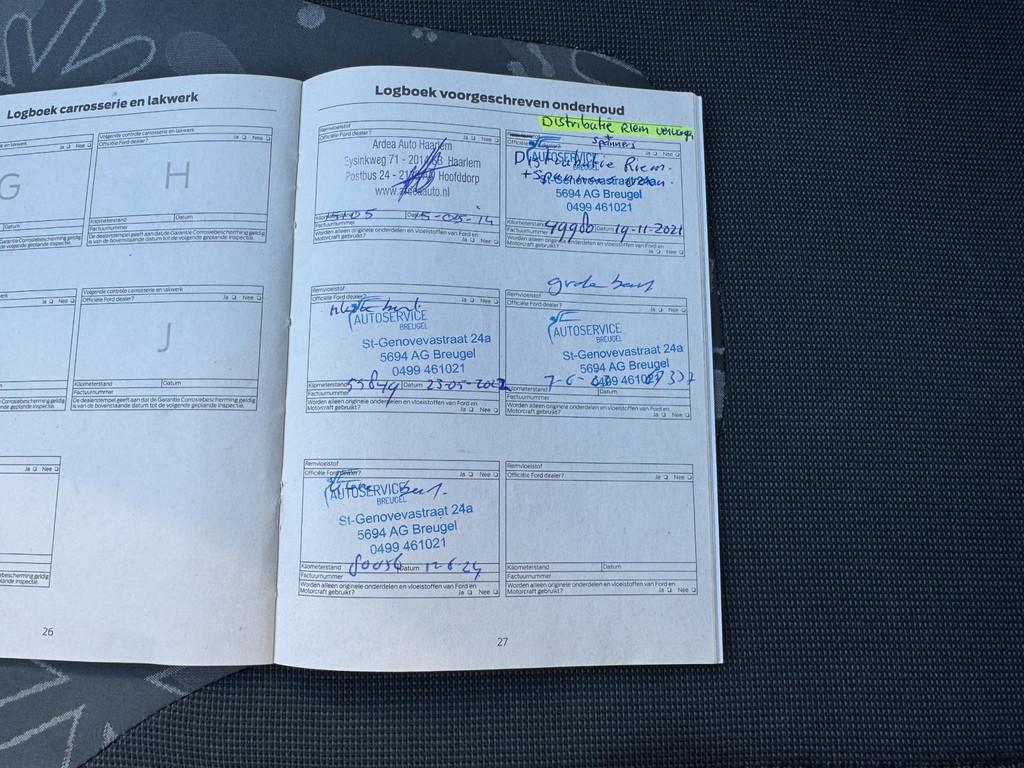 Logboek carrosserie en lakwerk
en lakwerk
Ja Nee
G
Datum
Garantie Corrosiebescherming geldig
de volgende geplande inspectie.
Volgende controle carrosserie en lakwerk
Officiële Ford dealer?
Ja Nee
H
Kilometerstand Datum
Factuurnummer
De dealerstempel geeft aan dat de Garantie Corrosiebescherming geldig
is van de bovenstaande datum tot de volgende geplande inspectie.
Ja Nee
Volgende controle carrosserie en lakwerk
Officiële Ford dealer?
Ja Nee
J
Kilometerstand Datum
Factuurnummer
De dealerstempel geeft aan dat de Garantie Corrosiebescherming geldig
is van de bovenstaande datum tot de volgende geplande inspectie.
Ja Nee
26
Logboek voorgeschreven onderhoud
Remvloeistof
Officiële Ford dealer?
Ja Nee
Ardea Auto Haarlem
Eysinkweg 71 - Haarlem
Postbus 24 - Hoofddorp
Kilometerstand 15105 Datum 15-05-14
Factuurnummer
Worden alleen originele onderdelen en vloeistoffen van Ford en
Motorcraft gebruikt?
Ja Nee
Distributie Riem
Spanners
Ja Nee
Distributie Riem
AUTOSERVICE
BREUGEL
St-Genovevastraat 24a
5694 AG Breugel
0499 461021
Kilometerstand 49980 Datum 19-11-2021
Factuurnummer
Worden alleen originele onderdelen en vloeistoffen van Ford en
Motorcraft gebruikt?
Ja Nee
Remvloeistof
Officiële Ford dealer?
Ja Nee
AUTOSERVICE
BREUGEL
St-Genovevastraat 24a
5694 AG Breugel
0499 461021
Kilometerstand 55849 Datum 23-05-2022
Factuurnummer
Worden alleen originele onderdelen en vloeistoffen van Ford en
Motorcraft gebruikt?
Ja Nee
grote beurt
Remvloeistof
Officiële Ford dealer?
Ja Nee
AUTOSERVICE
BREUGEL
St-Genovevastraat 24a
5694 AG Breugel
0499 461021
Kilometerstand Datum
Factuurnummer
Worden alleen originele onderdelen en vloeistoffen van Ford en
Motorcraft gebruikt?
Ja Nee
Remvloeistof
Officiële Ford dealer?
Ja Nee
AUTOSERVICE
BREUGEL
St-Genovevastraat 24a
5694 AG Breugel
0499 461021
Kilometerstand 80056 Datum 12-6-24
Factuurnummer
Worden alleen originele onderdelen en vloeistoffen van Ford en
Motorcraft gebruikt?
Ja Nee
Remvloeistof
Officiële Ford dealer?
Ja Nee
Kilometerstand Datum
Factuurnummer
Worden alleen originele onderdelen en vloeistoffen van Ford en
Motorcraft gebruikt?
Ja Nee
27